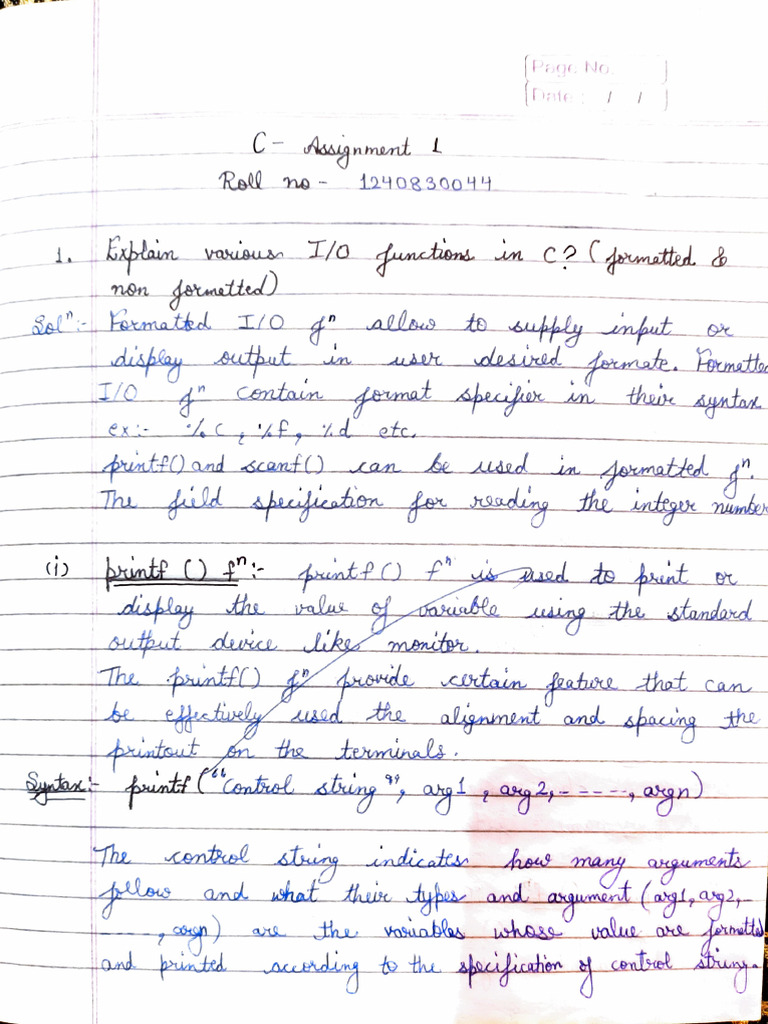 Page No.
Date : / /
C - Assignment 1
Roll no - 1240830044
1. Explain various I/O functions in C? (formatted &
non formatted)
Solⁿ:- Formatted I/O fⁿ allow to supply input or
display output in user desired formate. Formatted
I/O fⁿ contain format specifier in their syntax
ex:- %c, %f, %d etc.
printf() and scanf() can be used in formatted fⁿ.
The field specification for reading the integer number
(i) printf () fⁿ:- printf() fⁿ is used to print or
display the value of variable using the standard
output device like monitor.
The printf() fⁿ provide certain feature that can
be effectively used the alignment and spacing the
printout on the terminals.
Syntax:- printf ("control string", arg1, arg2,-----, argn)
The control string indicates how many arguments
follow and what their types and argument (arg1, arg2,-
----, argn) are the variables whose value are formatted
and printed according to the specification of control string.